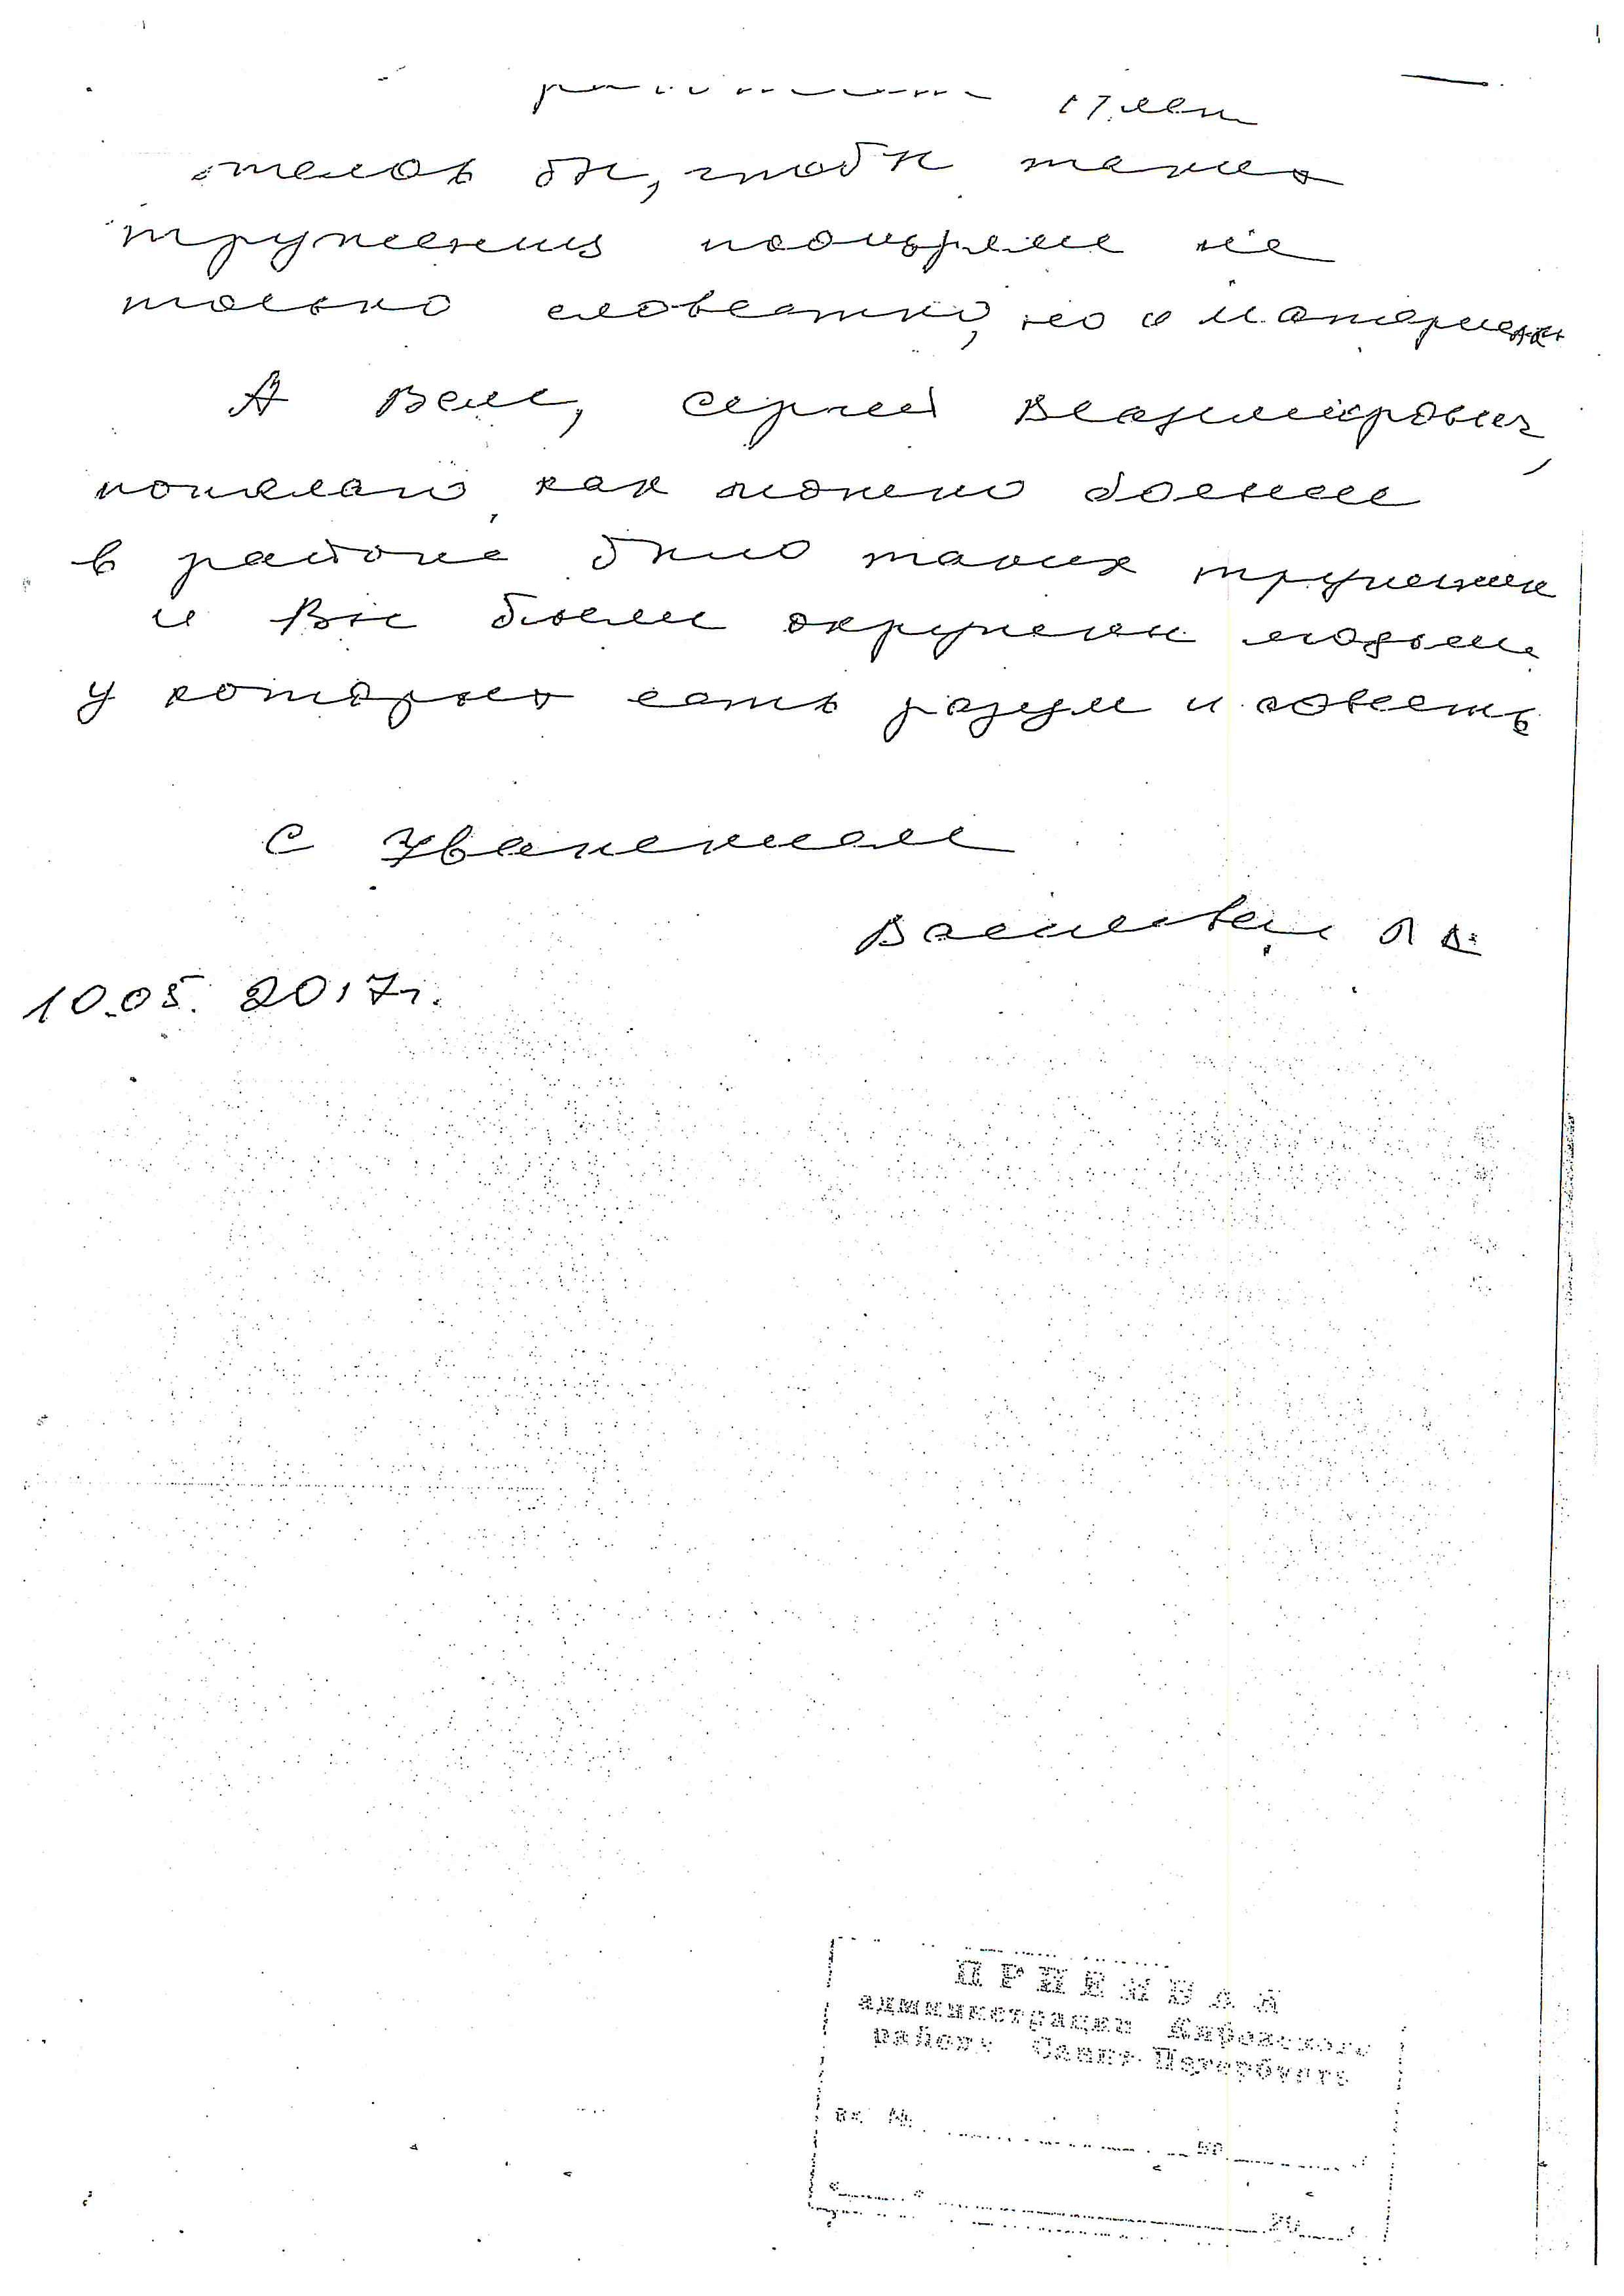 17 лет
желов бы, чтобы таких
тружениц поощряли не
только словестно, но и материально
А Вам, Сергей Владимирович,
пожелаю как можно больше
в районе было таких тружениц
и Вы были окружены людьми
у которых есть разум и совесть
С Уважением
10.05.2017г.
ПРИЕМНАЯ
администрации Кировского
района Санкт-Петербурга
вх. №
20